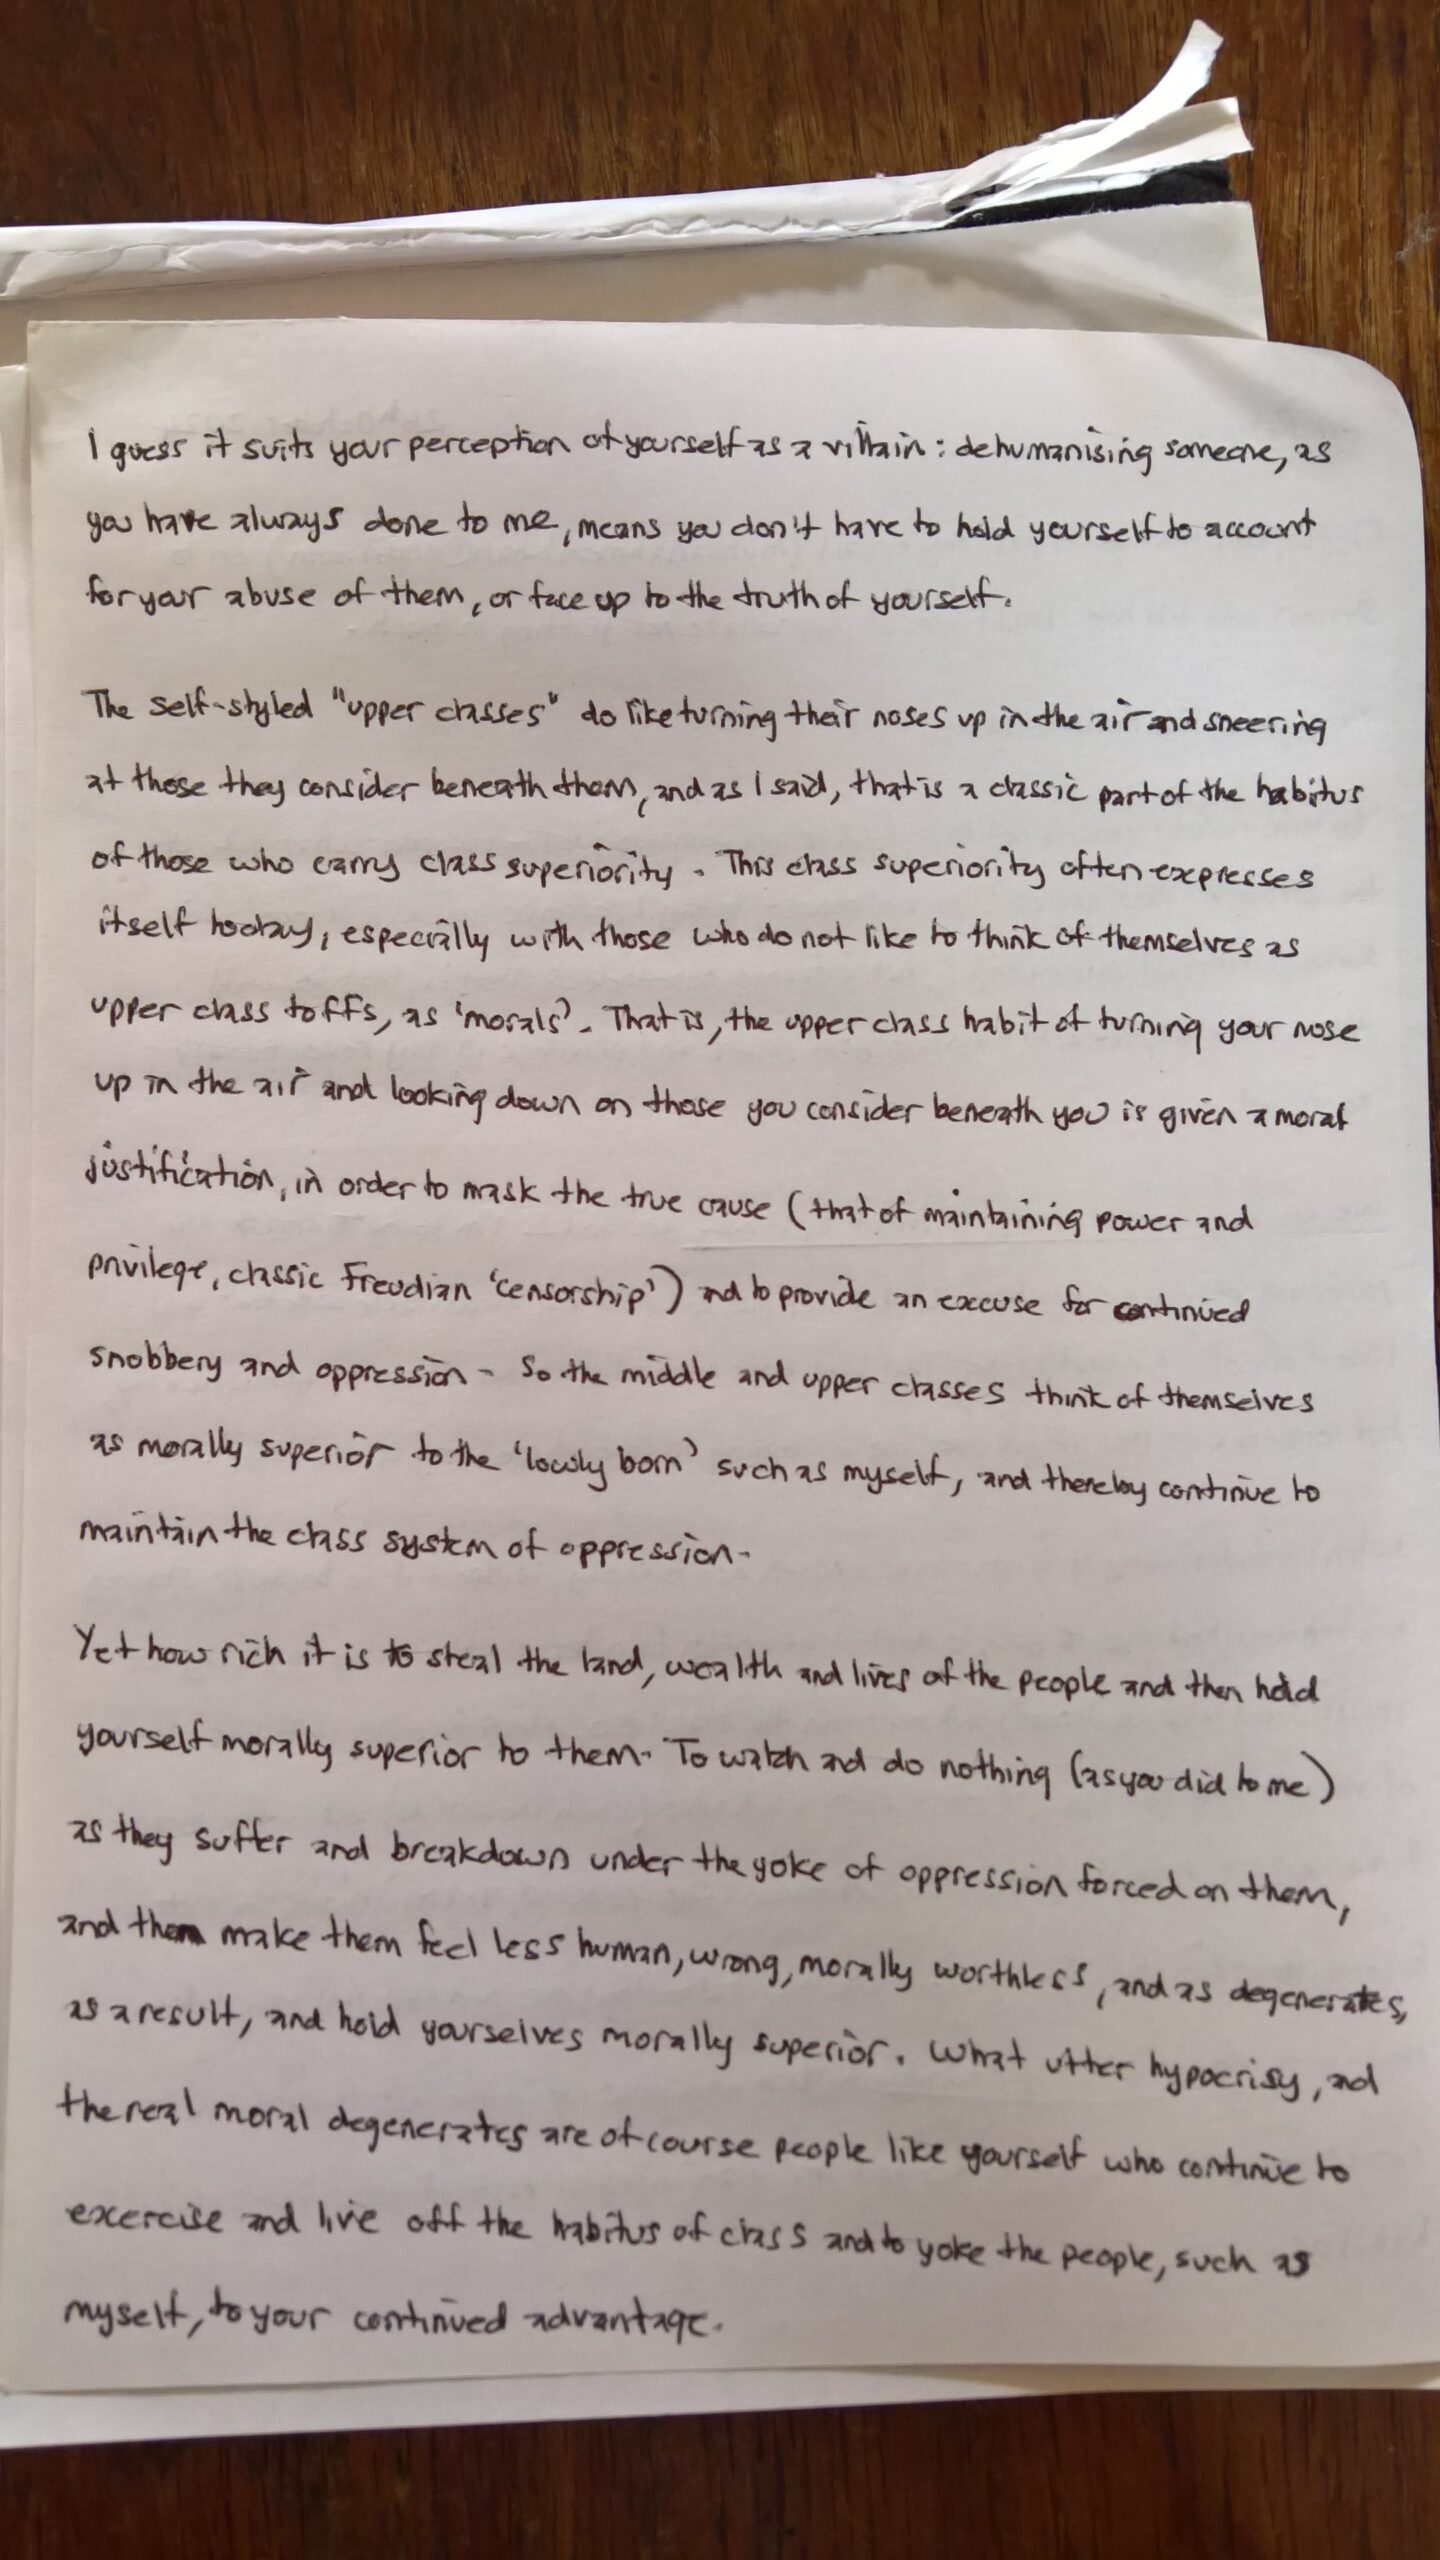 I guess it suits your perception of yourself as a villain: dehumanising someone, as
you have always done to me, means you don't have to hold yourself to account
for your abuse of them, or face up to the truth of yourself.
The self-styled "upper classes" do like turning their noses up in the air and sneering
at those they consider beneath them, and as I said, that is a classic part of the habitus
of those who carry class superiority. This class superiority often expresses
itself today, especially with those who do not like to think of themselves as
upper class toffs, as 'morals'. That is, the upper class habit of turning your nose
up in the air and looking down on those you consider beneath you is given a moral
justification, in order to mask the true cause (that of maintaining power and
privilege, classic Freudian 'censorship') and to provide an excuse for continued
snobbery and oppression - So the middle and upper classes think of themselves
as morally superior to the 'lowly born' such as myself, and thereby continue to
maintain the class system of oppression.
Yet how rich it is to steal the land, wealth and lives of the people and then hold
yourself morally superior to them. To watch and do nothing (as you did to me)
as they suffer and breakdown under the yoke of oppression forced on them,
and then make them feel less human, wrong, morally worthless, and as degenerates,
as a result, and hold yourselves morally superior. What utter hypocrisy, and
the real moral degenerates are of course people like yourself who continue to
exercise and live off the habitus of class and to yoke the people, such as
myself, to your continued advantage.